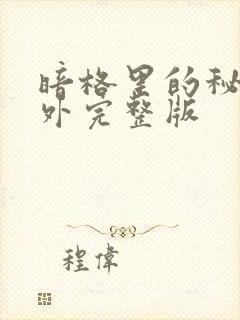 暗格里的秘
外完整版
程偉